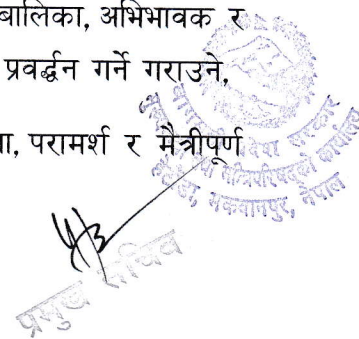 बालिका, अभिभावक र
प्रवर्द्धन गर्ने गराउने,
ा, परामर्श र मैत्रीपूर्ण
मकवानपुर, नेपाल
प्रमुख सचिव